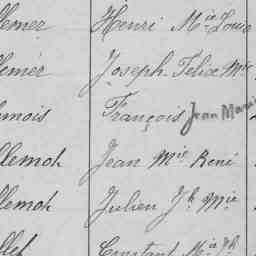 llemer Henri Mie Louis
llemer Joseph Felix Mie
lemois François Jean Marie
llemoh Jean Mie René
llemoh Julien Jh Mie
llef Constant Mie Jh